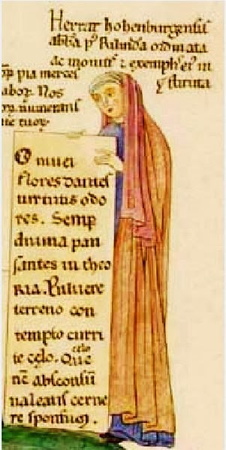 Herrat hohenburgensis
abba p⁹ Rilinda ordinata
ac monitis ⁊ exemplis ei⁹ in
stituta
pia merces
abor. Nos
munerans
ne tuor
O nivei
flores dantes
virtutis odo
res. Semp
divina pau
santes in theo
RIA. Pulvere
terreno con
tempto curri
te celo. Que
nc absconsu
valeatis cerne
re sponsum.